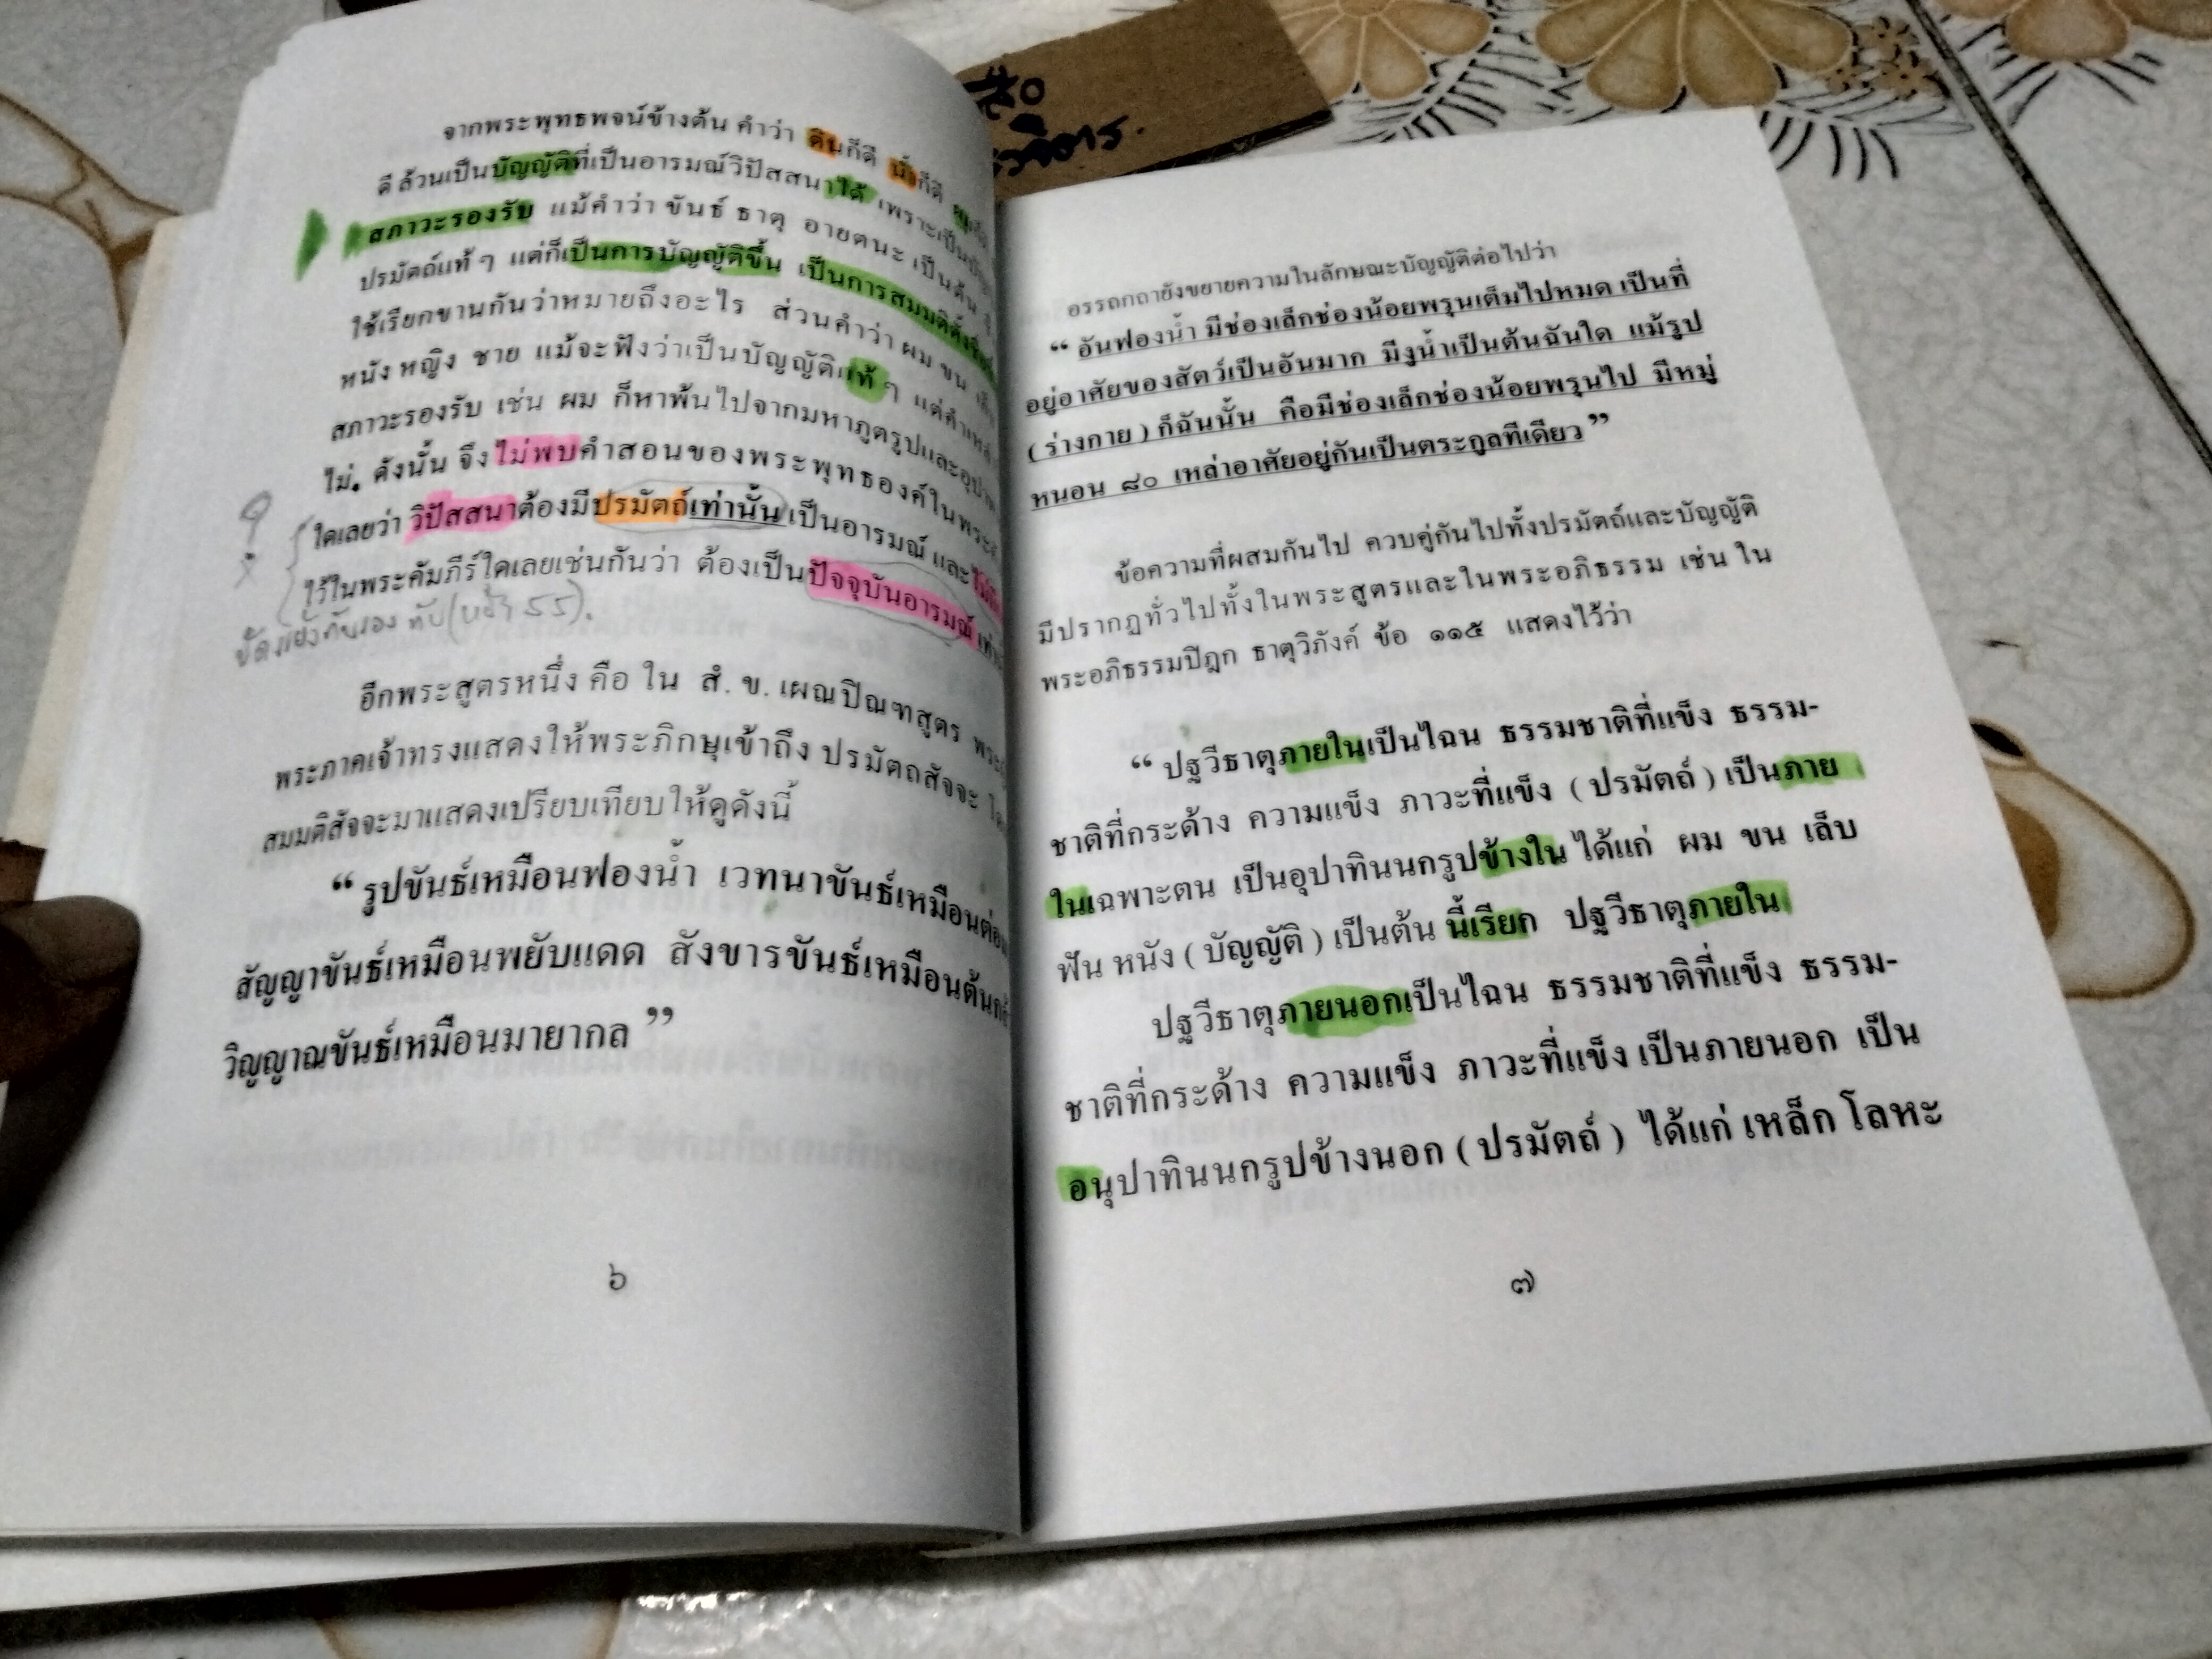 จากพระพุทธพจน์ข้างต้น คำว่า ดินก็ดี น้ำก็ดี ผมก็ดี
ดี ล้วนเป็นบัญญัติที่เป็นอารมณ์วิปัสสนาได้ เพราะเป็น
สภาวะรองรับ แม้คำว่า ขันธ์ ธาตุ อายตนะ เป็นต้น
ปรมัตถ์แท้ๆ แต่ก็เป็นการบัญญัติขึ้น เป็นการสมมติตั้งชื่อ
ใช้เรียกขานกันว่าหมายถึงอะไร ส่วนคำว่า ผม ขน เล็บ
หนัง หญิง ชาย แม้จะฟังว่าเป็นบัญญัติแท้ๆ แต่คำเหล่า
สภาวะรองรับ เช่น ผม ก็หาพ้นไปจากมหาภูตรูปและอุปาทา
ไม่. ดังนั้น จึงไม่พบคำสอนของพระพุทธองค์ในพระ
ใดเลยว่า วิปัสสนาต้องมีปรมัตถ์เท่านั้นเป็นอารมณ์ และไม่มี
ไว้ในพระคัมภีร์ใดเลยเช่นกันว่า ต้องเป็นปัจจุบันอารมณ์ เท่า
ขัดแย้งกันเอง กับ(หน้า 55).
อีกพระสูตรหนึ่ง คือ ใน สํ. ข. เผณปิณฑสูตร พระ
พระภาคเจ้าทรงแสดงให้พระภิกษุเข้าถึง ปรมัตถสัจจะ โดย
สมมติสัจจะมาแสดงเปรียบเทียบให้ดูดังนี้
“ รูปขันธ์เหมือนฟองน้ำ เวทนาขันธ์เหมือนต่อม
สัญญาขันธ์เหมือนพยับแดด สังขารขันธ์เหมือนต้นกล้
วิญญาณขันธ์เหมือนมายากล ”
๖
อรรถกถายังขยายความในลักษณะบัญญัติต่อไปว่า
“ อันฟองน้ำ มีช่องเล็กช่องน้อยพรุนเต็มไปหมด เป็นที่
อยู่อาศัยของสัตว์เป็นอันมาก มีงูน้ำเป็นต้นฉันใด แม้รูป
( ร่างกาย ) ก็ฉันนั้น คือมีช่องเล็กช่องน้อยพรุนไป มีหมู่
หนอน ๘๐ เหล่าอาศัยอยู่กันเป็นตระกูลทีเดียว ”
ข้อความที่ผสมกันไป ควบคู่กันไปทั้งปรมัตถ์และบัญญัติ
มีปรากฏทั่วไปทั้งในพระสูตรและในพระอภิธรรม เช่น ใน
พระอภิธรรมปิฎก ธาตุวิภังค์ ข้อ ๑๑๕ แสดงไว้ว่า
“ ปฐวีธาตุภายในเป็นไฉน ธรรมชาติที่แข็ง ธรรม-
ชาติที่กระด้าง ความแข็ง ภาวะที่แข็ง ( ปรมัตถ์ ) เป็นภาย
ในเฉพาะตน เป็นอุปาทินนกรูปข้างใน ได้แก่ ผม ขน เล็บ
ฟัน หนัง ( บัญญัติ ) เป็นต้น นี้เรียก ปฐวีธาตุภายใน
ปฐวีธาตุภายนอกเป็นไฉน ธรรมชาติที่แข็ง ธรรม-
ชาติที่กระด้าง ความแข็ง ภาวะที่แข็ง เป็นภายนอก เป็น
อนุปาทินนกรูปข้างนอก ( ปรมัตถ์ ) ได้แก่ เหล็ก โลหะ
๗